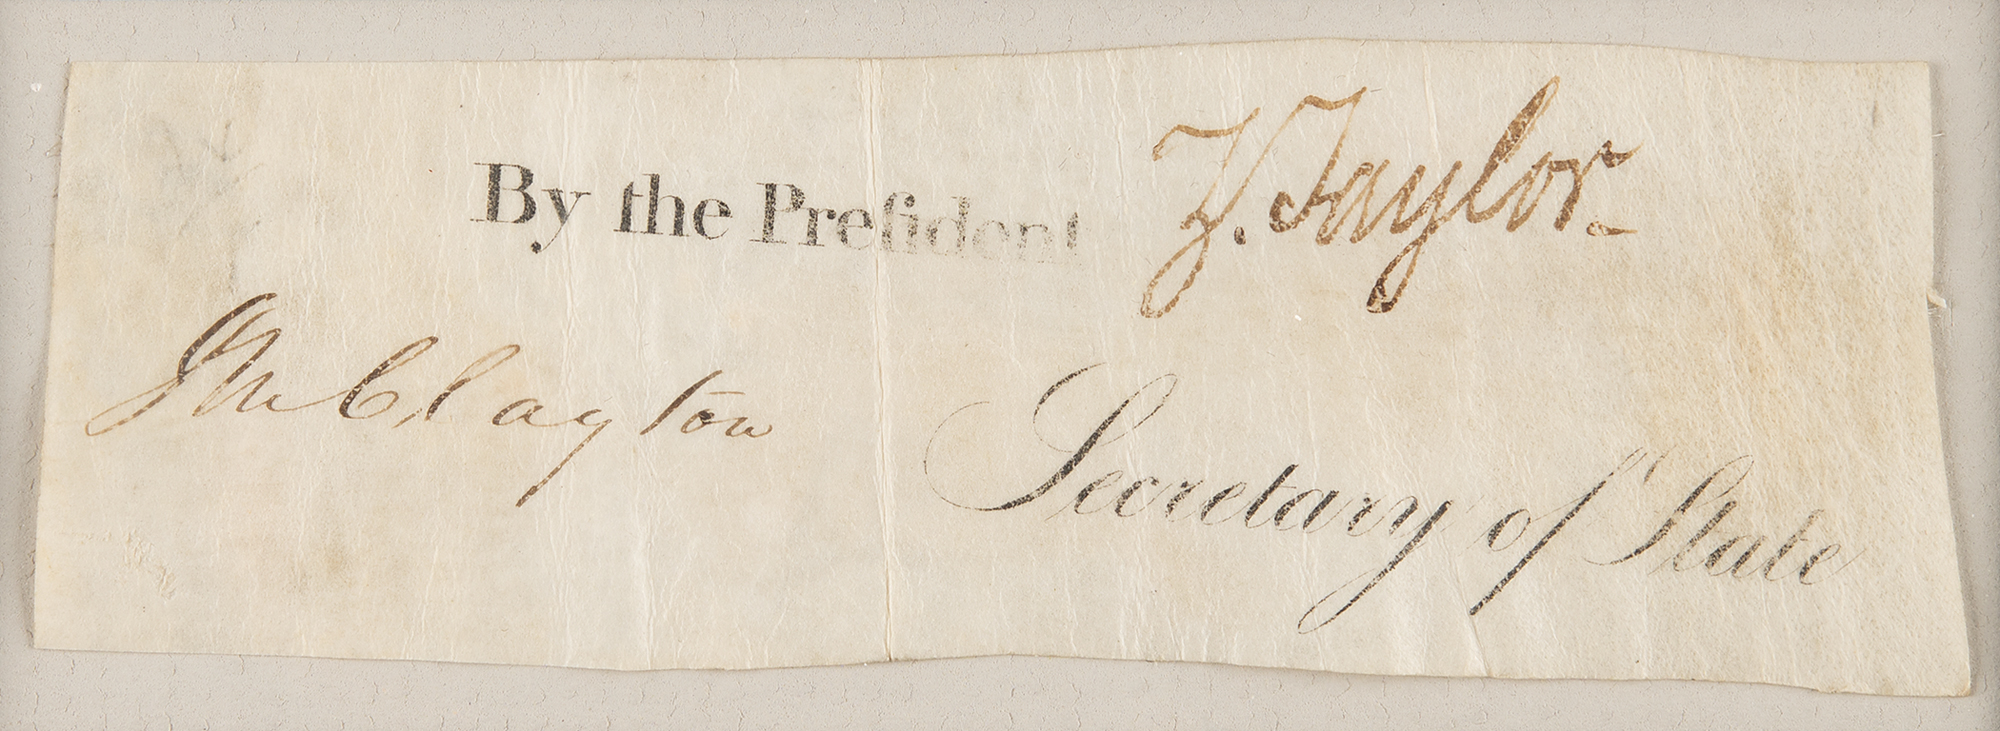 By the Preſident Z. Taylor.
J M Clayton Secretary of State